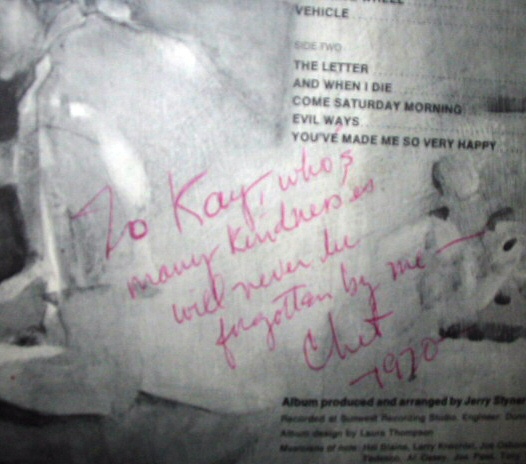 WHEEL
VEHICLE
SIDE TWO
THE LETTER
AND WHEN I DIE
COME SATURDAY MORNING
EVIL WAYS
YOU'VE MADE ME SO VERY HAPPY
To Kay, who's
many kindnesses
will never be
forgotten by me —
Chet
1970
Album produced and arranged by Jerry Styner
Recorded at Sunwest Recording Studio, Engineer: Donn
Album design by Laura Thompson
Musicians of note: Hal Blaine, Larry Knechtel, Joe Osborn
Al Casey, Joe Pass, Tony